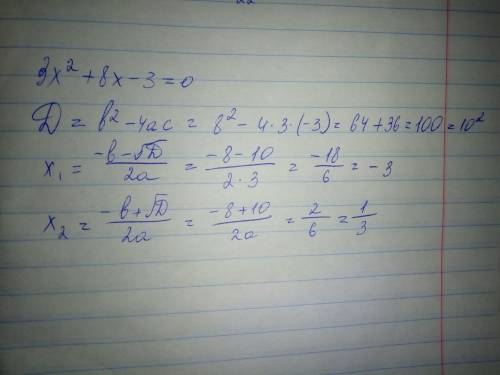 3x² + 8x - 3 = 0
D = b² - 4ac = 8² - 4·3·(-3) = 64 + 36 = 100 = 10²
x₁ = (-b - √D)/2a = (-8 - 10)/(2·3) = -18/6 = -3
x₂ = (-b + √D)/2a = (-8 + 10)/2a = 2/6 = 1/3